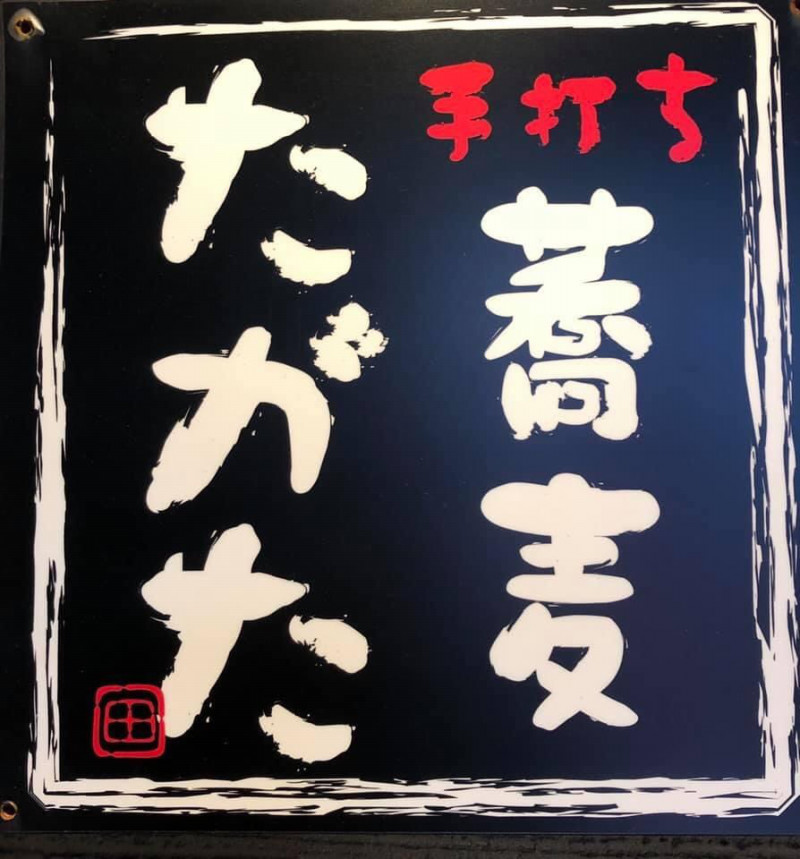 手打ち
蕎麦
たがた
田